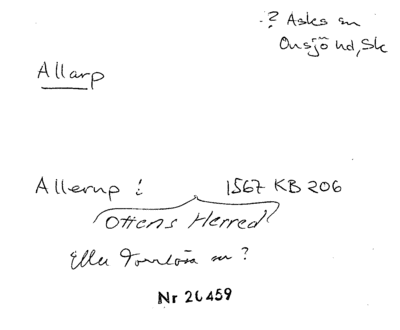 ? Asks sn
Onsjö hd, Sk
Allarp
Allerup i 1567 KB 206
Ottens Herred
Eller Torrlösa sn?
Nr 20459